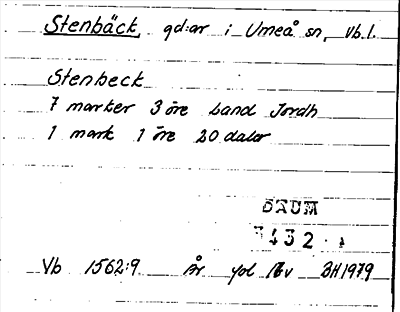 Stenbäck, gd:ar i Umeå sn, Vb.l.
Stenbeck
7 marker 3 öre Land Jordh
1 mark 1 öre 20 daler
DAUM
3432
Vb 1562:9 År fol 16v BH1979